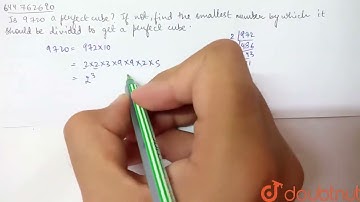 644762690
Is 9720 a perfect cube? If not, find the smallest number by which it
should be divided to get a perfect cube.
9720 = 972×10
= 2×2×3×9×9×2×5
= 2³
2 972
486
doubtnut